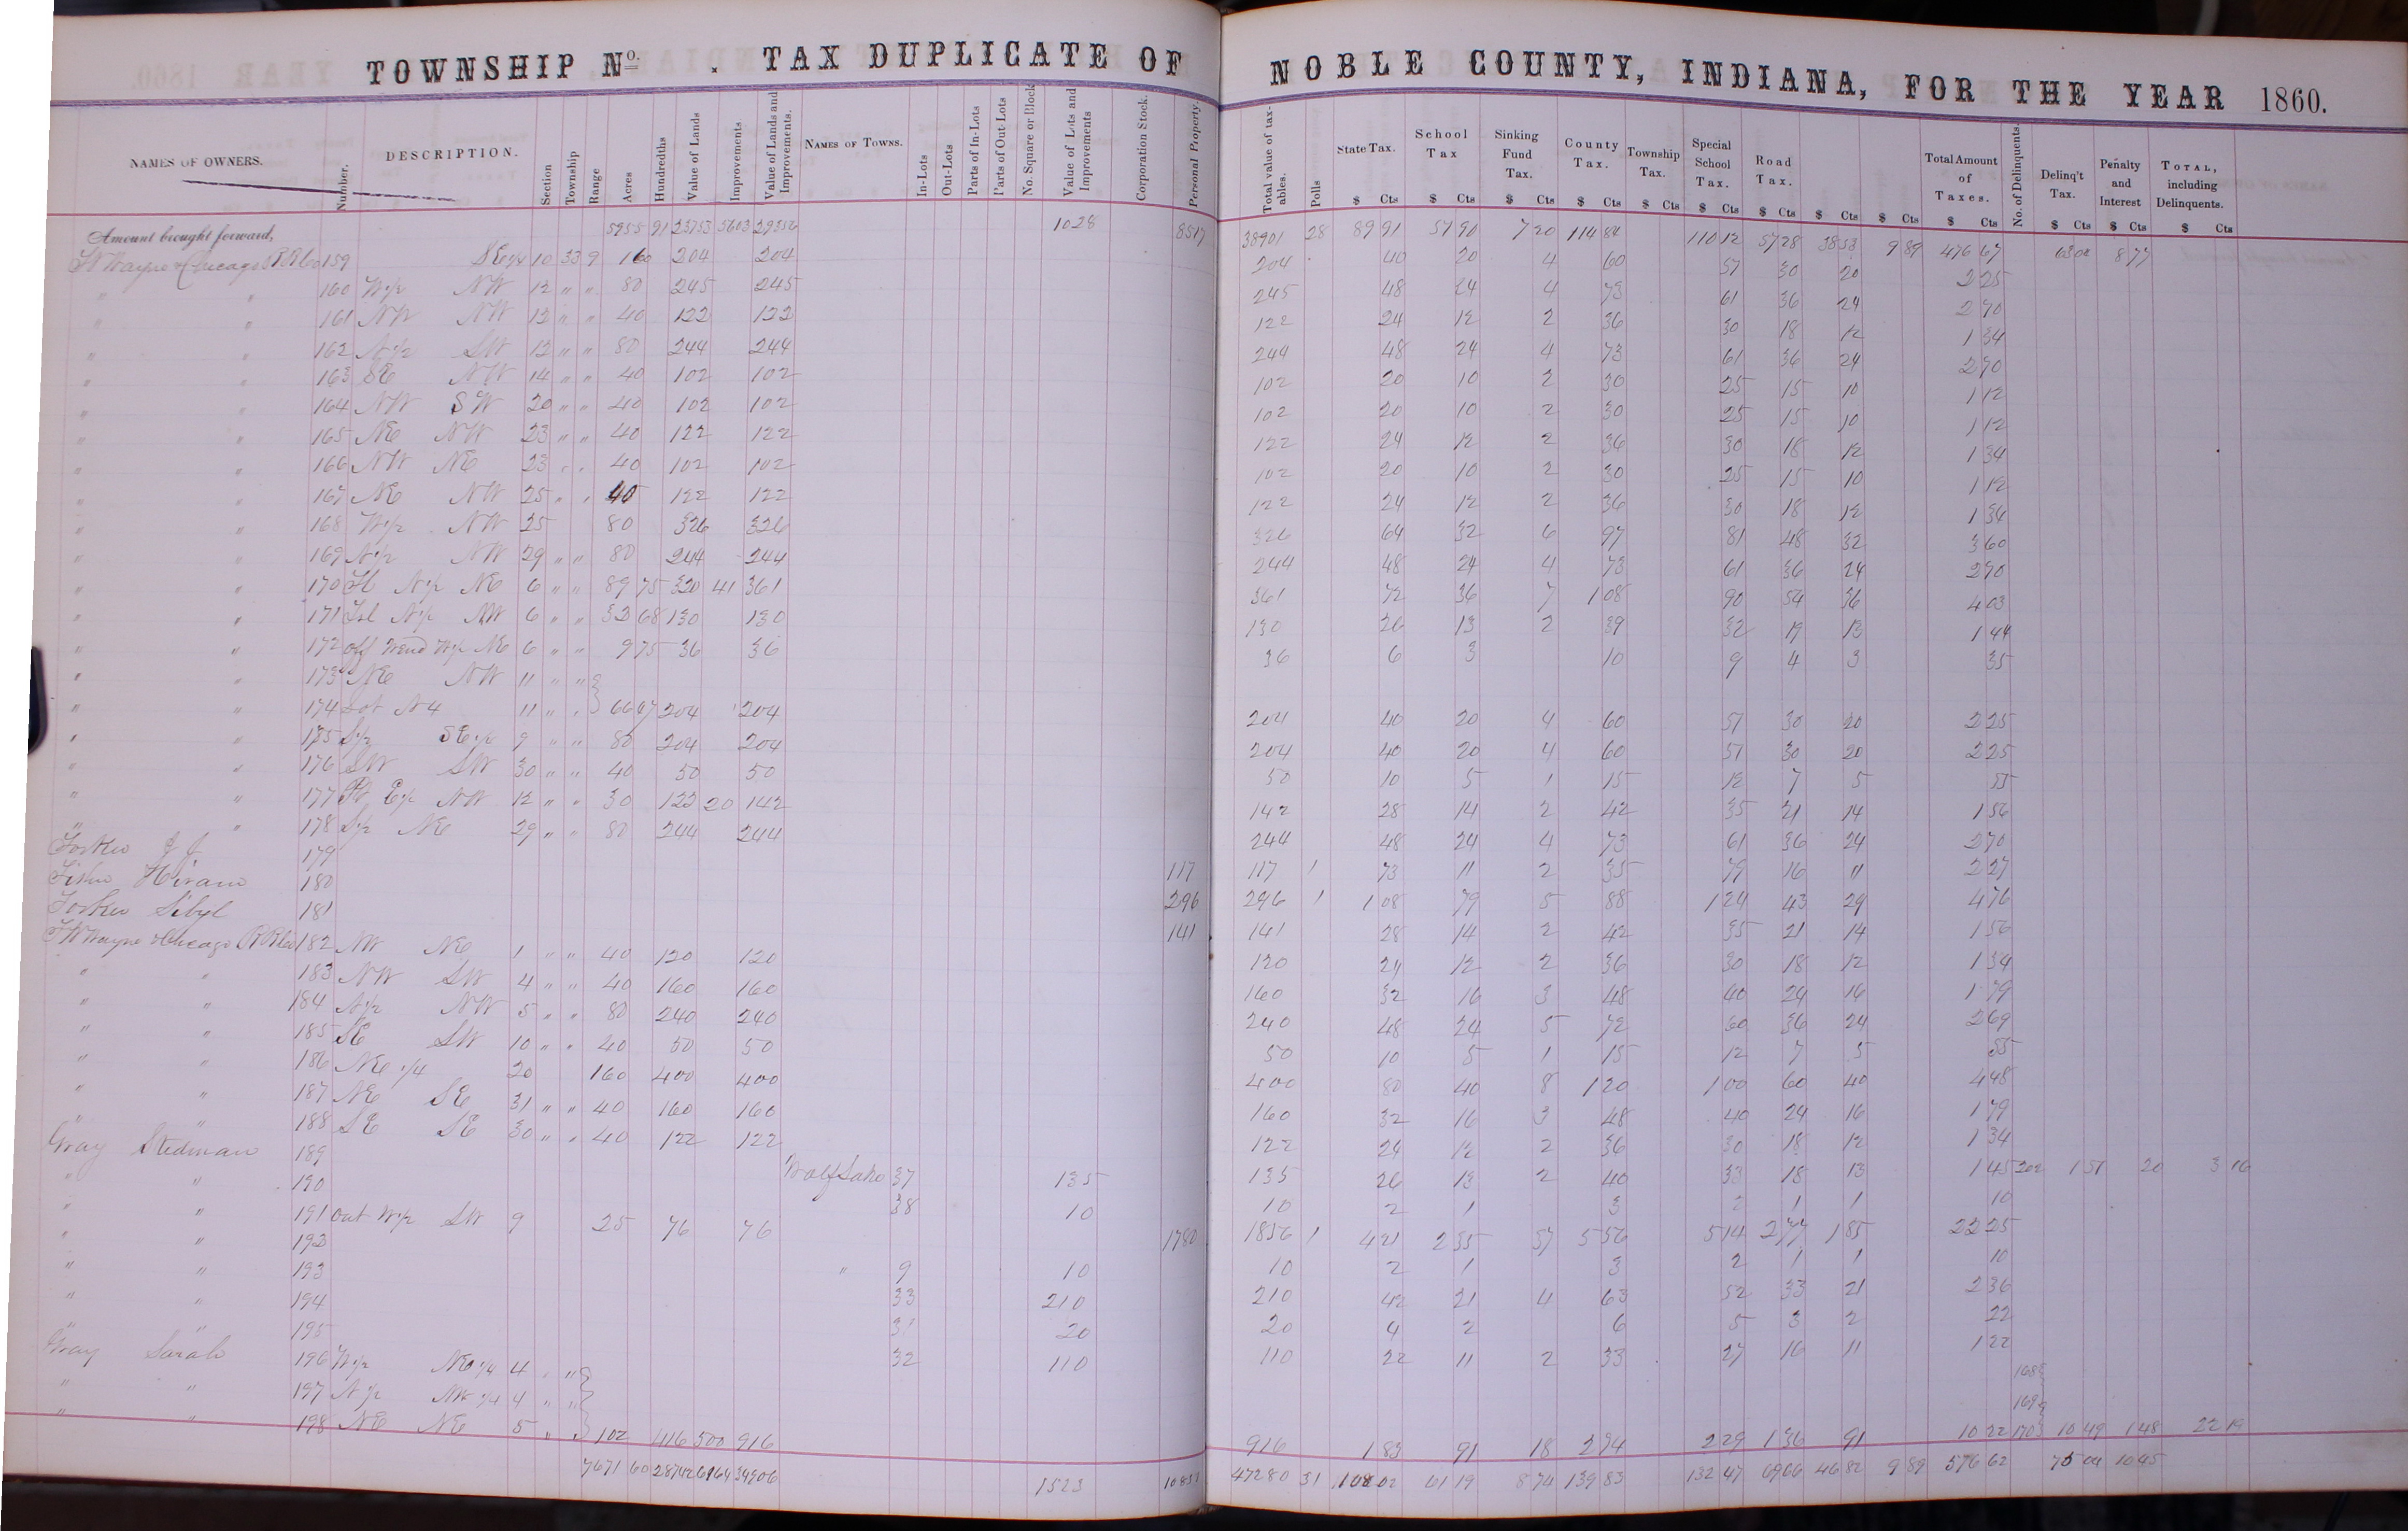 TOWNSHIP No. . TAX DUPLICATE OF NOBLE COUNTY, INDIANA, FOR THE YEAR 1860.
NAMES OF OWNERS. Number. DESCRIPTION. Section Township Range Acres Hundredths Value of Lands Improvements Value of Lands and Improvements. NAMES OF TOWNS. In-Lots Out-Lots Parts of In-Lots Parts of Out Lots No. Square or Block Value of Lots and Improvements Corporation Stock. Personal Property. Total value of taxables. Polls State Tax. School Tax Sinking Fund Tax. County Tax. Township Tax. Special School Tax. Road Tax. Total Amount of Taxes. No. of Delinquents Delinq't Tax. Penalty and Interest TOTAL, including Delinquents.
$ Cts $ Cts $ Cts $ Cts $ Cts $ Cts $ Cts $ Cts $ Cts $ Cts $ Cts $ Cts $ Cts
Amount brought forward, 5955 91 23753 5603 29356 1028 8517 38901 28 89 91 57 90 7 20 114 84 110 12 57 28 38 53 9 89 476 67 63 08 8 77
Ft Wayne & Chicago R R Co 159 SE 1/4 10 33 9 160 204 204 204 40 20 4 60 51 30 20 2 25
" " 160 W 1/2 NW 12 " " 80 245 245 245 48 24 4 73 61 36 24 2 70
" " 161 NW 12 " " 40 122 122 122 24 12 2 36 30 18 12 1 34
" " 162 N 1/2 SW 12 " " 80 244 244 244 48 24 4 73 61 36 24 2 70
" " 163 SE NW 14 " " 40 102 102 102 20 10 2 30 25 15 10 1 12
" " 164 NW SW 20 " " 40 102 102 102 20 10 2 30 25 15 10 1 12
" " 165 NE NW 23 " " 40 122 122 122 24 12 2 36 30 18 12 1 34
" " 166 NW NE 23 " " 40 102 102 102 20 10 2 30 25 15 10 1 12
" " 167 NE NW 25 " " 40 122 122 122 24 12 2 36 30 18 12 1 34
" " 168 W 1/2 NW 25 80 326 326 326 64 32 6 97 81 48 32 3 60
" " 169 N 1/2 NW 29 " " 80 244 244 244 48 24 4 73 61 36 24 2 70
" " 170 N 1/2 NE 6 " " 89 75 320 41 361 361 72 36 7 1 08 90 54 36 4 03
" " 171 N 1/2 NW 6 " " 32 68 130 130 130 26 13 2 39 32 19 13 1 44
" " 172 off W end W 1/2 NE 6 " " 9 75 36 36 36 6 3 10 9 4 3 35
" " 173 NE NW 11 " "
" " 174 Lot N 4 11 " " 66 67 204 204 204 40 20 4 60 51 30 20 2 25
" " 175 S 1/2 SE 1/4 9 " " 80 204 204 204 40 20 4 60 51 30 20 2 25
" " 176 SW SW 30 " " 40 50 50 50 10 5 1 15 12 7 5 55
" " 177 Pt E 1/2 NW 12 " " 30 122 20 142 142 28 14 2 42 35 21 14 1 56
" " 178 S 1/2 NE 29 " " 80 244 244 244 48 24 4 73 61 36 24 2 70
179 117 117 1 73 11 2 35 79 16 11 2 27
Hiram 180 296 296 1 1 08 79 5 88 1 24 43 29 4 76
Sibyl 181 141 141 28 14 2 42 35 21 14 1 56
Ft Wayne & Chicago R R Co 182 NW NE 1 " " 40 120 120 120 24 12 2 36 30 18 12 1 34
" " 183 NW SW 4 " " 40 160 160 160 32 16 3 48 40 24 16 1 79
" " 184 N 1/2 NW 5 " " 80 240 240 240 48 24 5 72 60 36 24 2 69
" " 185 SE SW 10 " " 40 50 50 50 10 5 1 15 12 7 5 55
" " 186 NE 1/4 20 160 400 400 400 80 40 8 1 20 1 00 60 40 4 48
" " 187 NE SE 31 " " 40 160 160 160 32 16 3 48 40 24 16 1 79
" " 188 SE SE 30 " " 40 122 122 122 24 12 2 36 30 18 12 1 34
Gray Stedman 189 Wolf Lake 37 135 135 26 13 2 40 33 18 13 1 45 202 1 51 20 3 16
" " 190 38 10 10 2 1 3 2 1 1 10
" " 191 out W 1/2 SW 9 25 76 76 1780 1856 1 4 21 2 35 37 5 56 5 14 2 77 1 85 22 25
" " 192
" " 193 " 9 10 10 2 1 3 2 1 1 10
" " 194 33 210 210 42 21 4 63 52 33 21 2 36
" " 195 31 20 20 4 2 6 5 3 2 22
32 110 110 22 11 2 33 27 16 11 1 22
Gray Sarah 196 W 1/2 NE 1/4 4 " " 168
" " 197 N 1/2 NW 1/4 4 " " 169
" " 198 NE NE 5 " " 102 416 500 916 916 1 83 91 18 2 74 2 29 1 36 91 10 22 170 10 49 1 48 22 19
7671 60 28742 6164 34906 1523 10851 47280 31 108 02 61 19 8 74 139 83 132 47 69 66 46 82 9 89 576 62 75 04 10 45